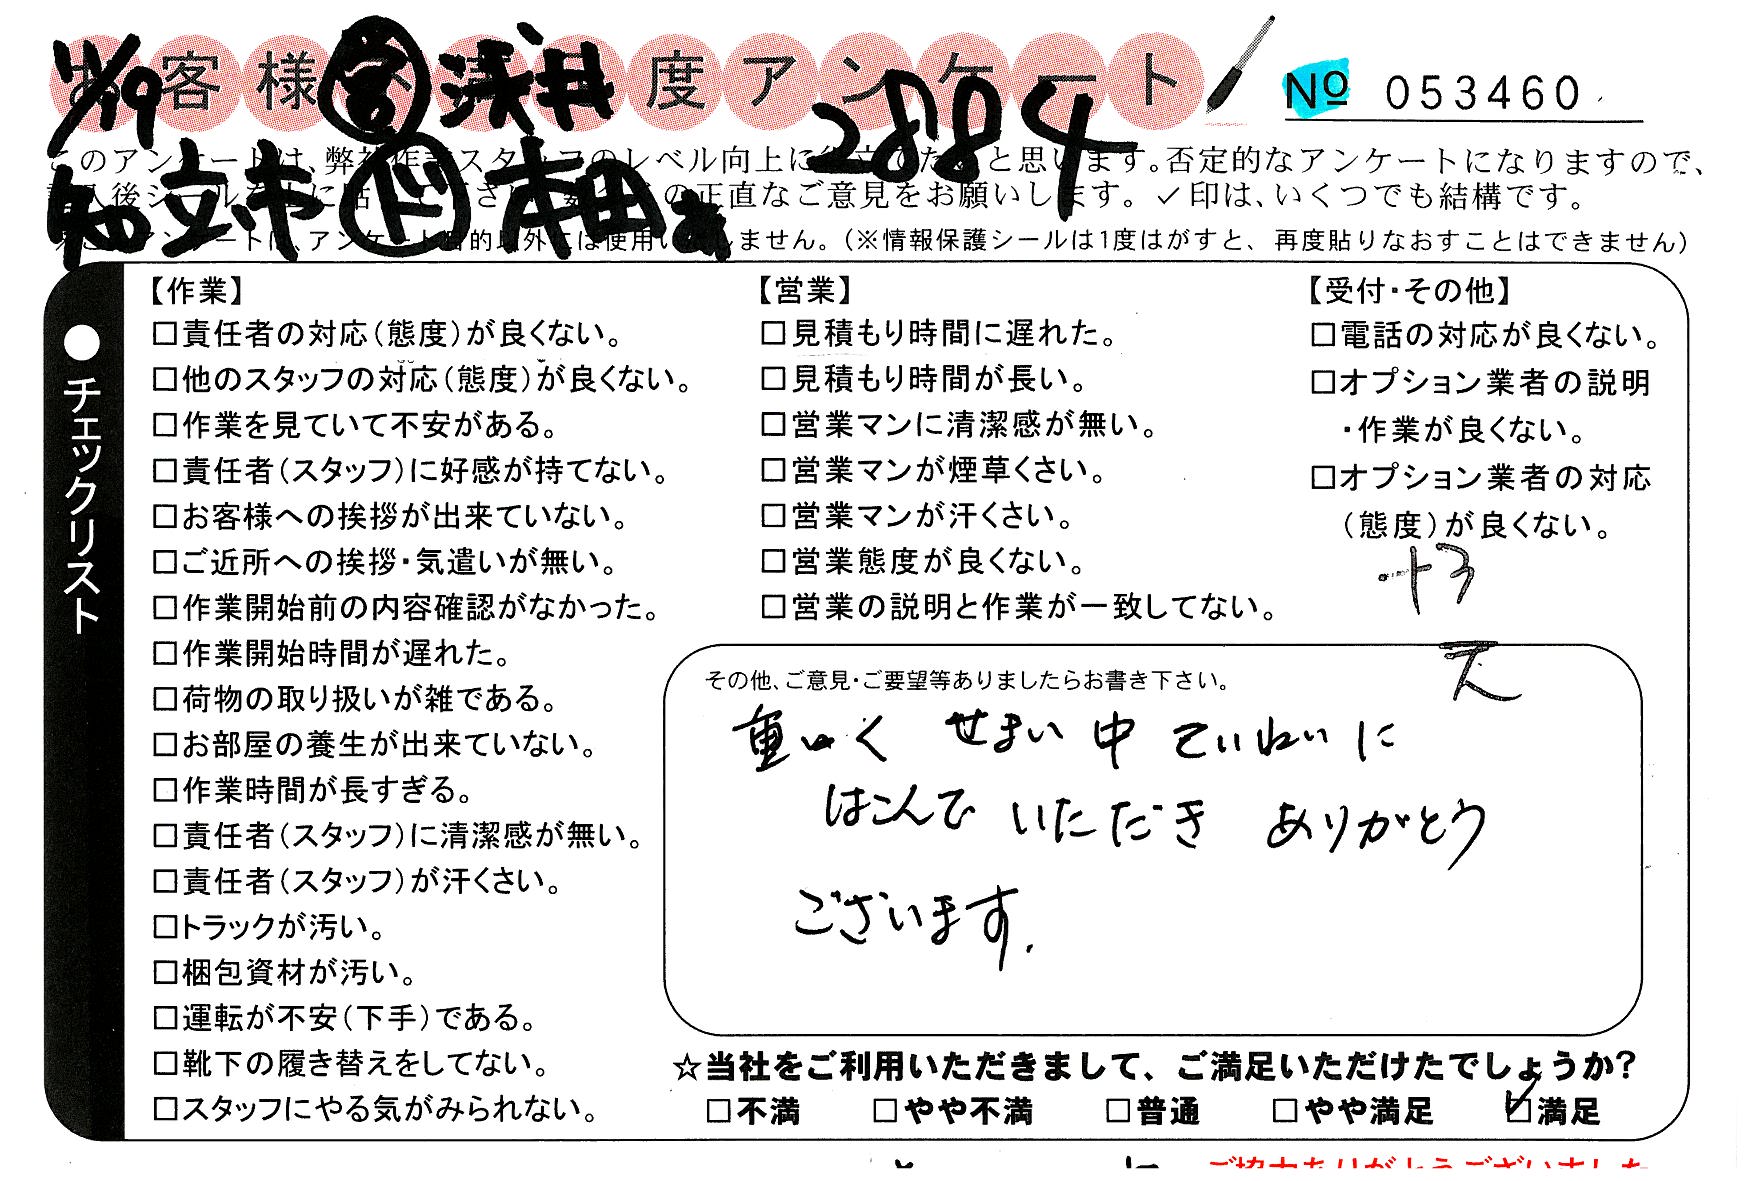 11/19 営 浅井
お客様不満度アンケート
2884
No 053460
知立市 ド 本田
このアンケートは、弊社作業スタッフのレベル向上に役立てたいと思います。否定的なアンケートになりますので、
記入後シールを上に貼って下さい。数多くの正直なご意見をお願いします。✓印は、いくつでも結構です。
アンケートは、アンケート目的以外には使用いたしません。(※情報保護シールは1度はがすと、再度貼りなおすことはできません)
●チェックリスト
【作業】
□責任者の対応(態度)が良くない。
□他のスタッフの対応(態度)が良くない。
□作業を見ていて不安がある。
□責任者(スタッフ)に好感が持てない。
□お客様への挨拶が出来ていない。
□ご近所への挨拶・気遣いが無い。
□作業開始前の内容確認がなかった。
□作業開始時間が遅れた。
□荷物の取り扱いが雑である。
□お部屋の養生が出来ていない。
□作業時間が長すぎる。
□責任者(スタッフ)に清潔感が無い。
□責任者(スタッフ)が汗くさい。
□トラックが汚い。
□梱包資材が汚い。
□運転が不安(下手)である。
□靴下の履き替えをしてない。
□スタッフにやる気がみられない。
【営業】
□見積もり時間に遅れた。
□見積もり時間が長い。
□営業マンに清潔感が無い。
□営業マンが煙草くさい。
□営業マンが汗くさい。
□営業態度が良くない。
□営業の説明と作業が一致してない。
【受付・その他】
□電話の対応が良くない。
□オプション業者の説明
・作業が良くない。
□オプション業者の対応
(態度)が良くない。
その他、ご意見・ご要望等ありましたらお書き下さい。
重く せまい 中 ていねいに
はこんで いただき ありがとう
ございます.
☆当社をご利用いただきまして、ご満足いただけたでしょうか?
□不満 □やや不満 □普通 □やや満足 ☑満足
ご協力ありがとうございました